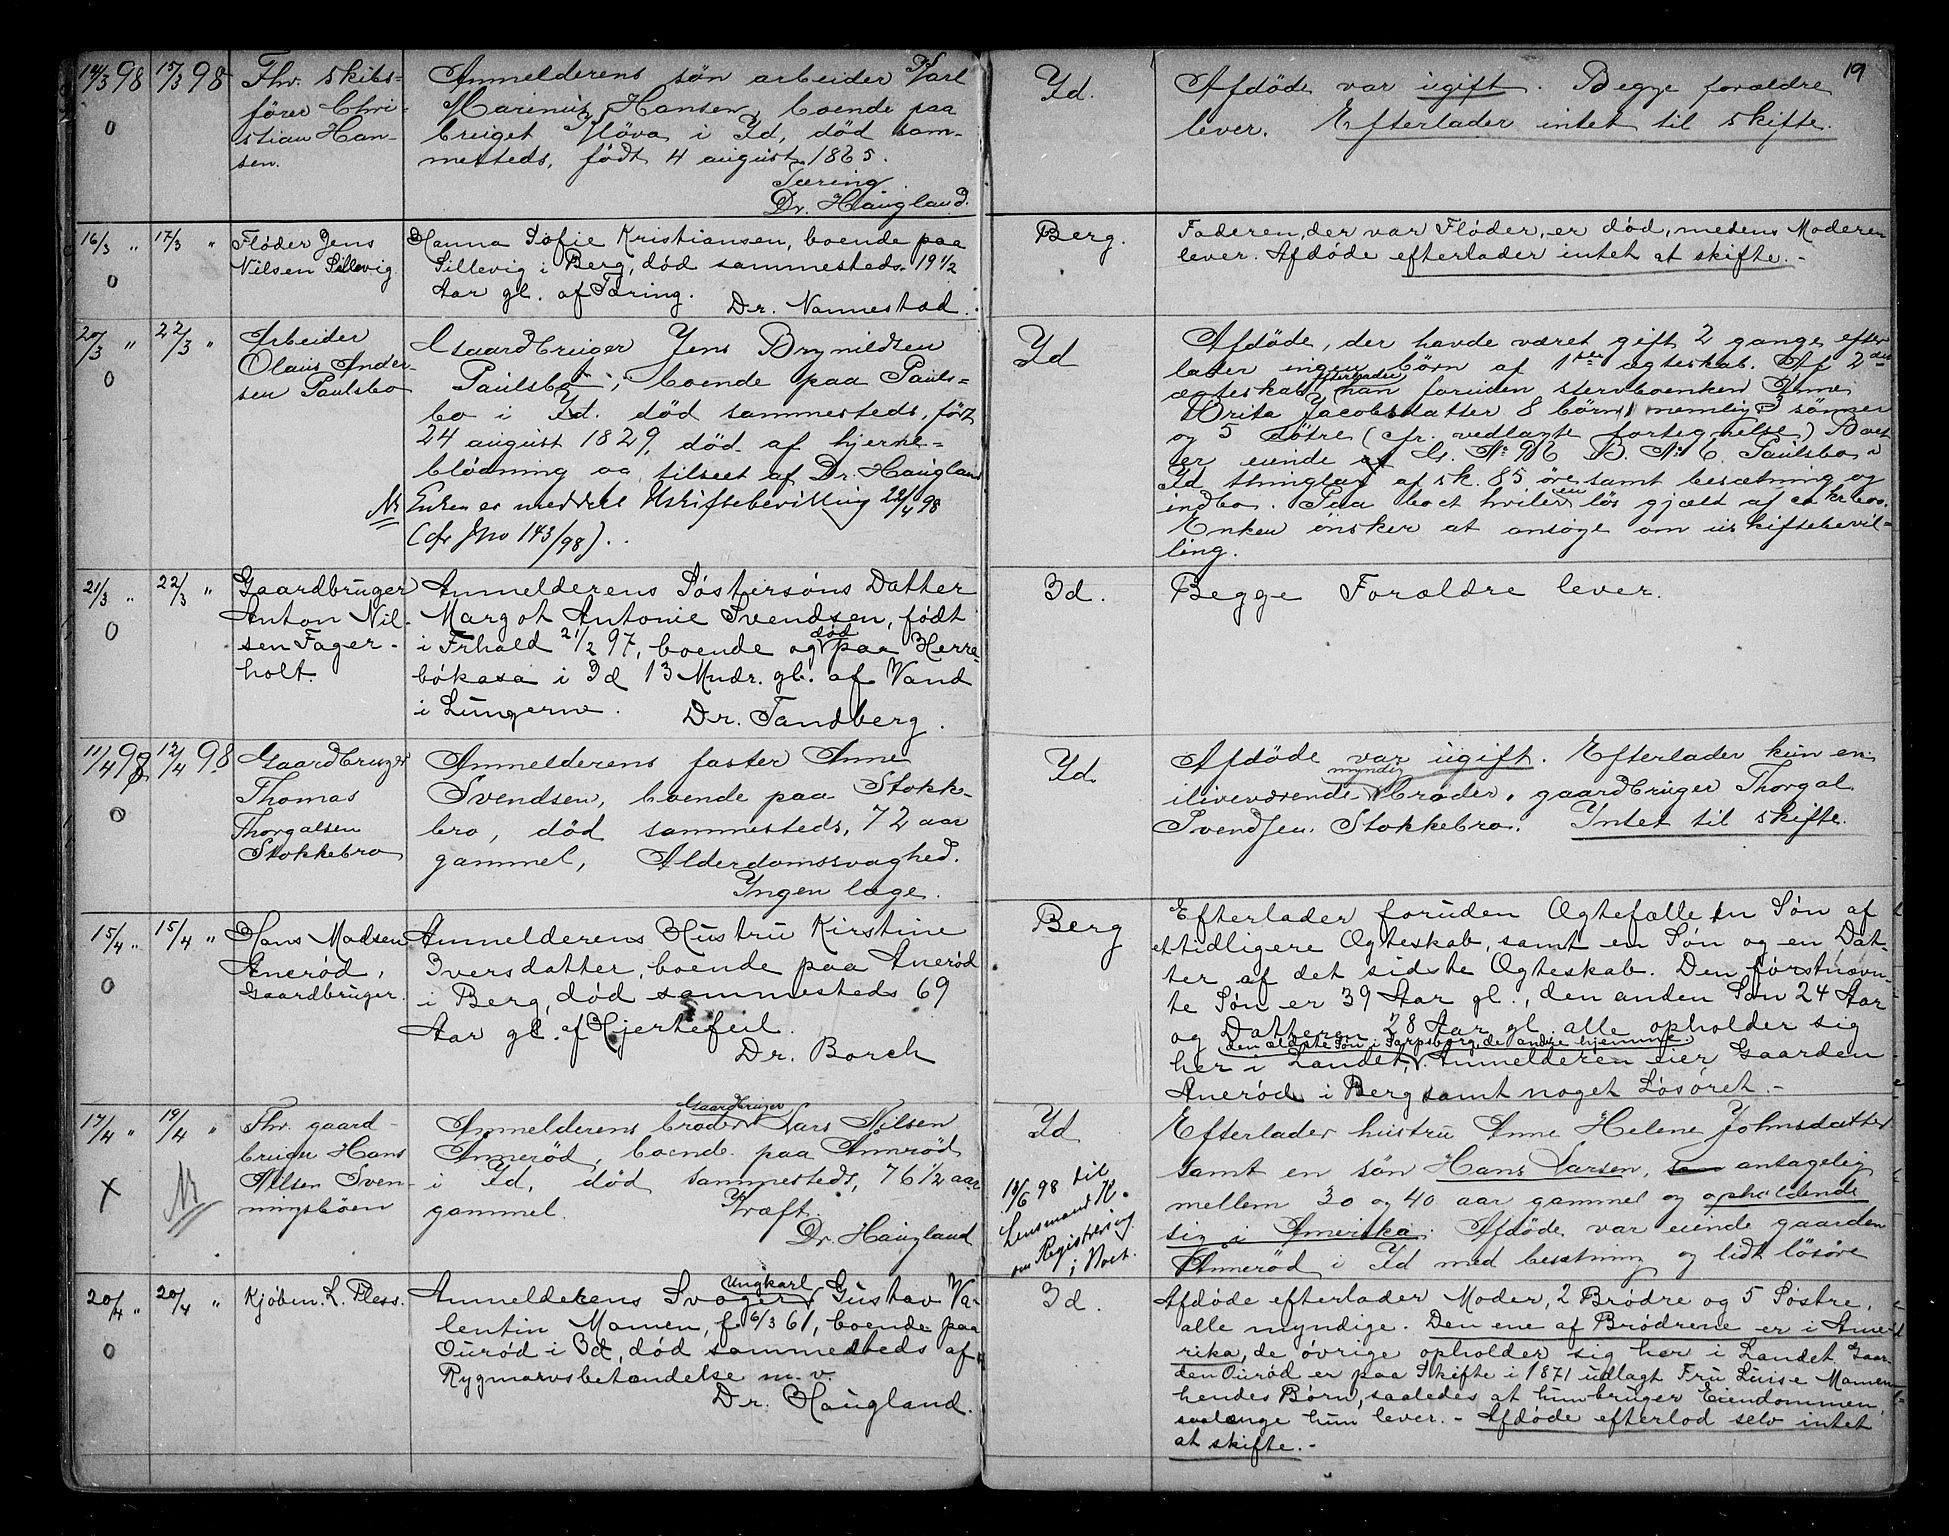 19
14/3 98
15/3 98
0
Fhv. skibs-
fører Chri-
stian Han-
sen.
Anmelderens søn arbeider Karl
Marinius Hansen, boende paa
bruget Kløva i Id, død sam-
mesteds, født 4 august 1865.
Tæring
Dr. Haugland.
Id.
Afdøde var ugift. Begge forældre
lever. Efterlader intet til skifte.
16/3 "
17/3 "
0
Fløder Jens
Nilsen Sillevig
Hanna Sofie Kristiansen, boende paa
Sillevig i Berg, død sammesteds 19 1/2
Aar gl. af Tæring.
Dr. Nannestad.
Berg.
Faderen, der var Fløder, er død, medens Moderen
lever. Afdøde efterlader intet at skifte. -
20/3 "
22/3 "
0
Arbeider
Olaus Ander-
sen Paulsbo
Gaardbruger Jens Brynildsen
Paulsbo, boende paa Pauls=
bo i Id. død sammesteds, født
24 august 1829, død af hjerne=
blødning og tilseet af Dr. Haugland
NB Enken er meddelt Uskiftebevilling 22/4 98
(cfr Jno 143/98).
Id
Afdøde, der havde været gift 2 gange efter
lader ingen børn af 1ste ægteskab. Af 2det
ægteskab efterlader han foruden stervboenken Anne
Brita Jacobsdatter 8 børn, nemlig 3 sønner
og 5 døtre (cfr. vedlagte fortegnelse) Boet
er eiende af G. No 96 B. No 6 Paulsbo i
Id thinglag af sk. 85 øre samt besætning og
indbo. Paa boet hviler en løs gjæld af ca Kr 600.
Enken ønsker at ansøge om uskiftebevil-
ling.
21/3 "
22/3 "
0
Gaardbruger
Anton Nil-
sen Fager-
holt.
Anmelderens Søstersøns Datter
Margot Antonie Svendsen, født
i Frhald 21/2 97, boende og død paa Herre-
bøkasa i Id 13 Mndr. gl. af Vand
i Lungerne.
Dr. Tandberg.
Id.
Begge Forældre lever.
11/4 98
12/4 98
0
Gaardbruger
Thomas
Thorgalsen
Stokkebro
Anmelderens faster Anne
Svendsen, boende paa Stokk-
bro, død sammesteds, 72 aar
gammel, Alderdomssvaghed.
Ingen læge.
Id.
Afdøde var ugift. Efterlader kun en
ilivværende myndig broder, gaardbruger Thorgal
Svendsen Stokkebro. Intet til skifte.
15/4 "
15/4 "
0
Hans Madsen
Anerød,
Gaardbruger.
Anmelderens Hustru Kirstine
Iversdatter, boende paa Anerød
i Berg, død sammesteds 69
Aar gl. af Hjertefeil.
Dr. Borch
Berg
Efterlader foruden Ægtefælle en Søn af
et tidligere Ægteskab, samt en Søn og en Dat-
ter af det sidste Ægteskab. Den førstnævn-
te Søn er 39 Aar gl., den anden Søn 24 Aar
og Datteren 28 Aar gl. alle opholder sig
den ældste Søn i Sarpsborg, de andre hjemme.
her i Landet. Anmelderen eier Gaarden
Anerød i Berg samt noget Løsøret. -
17/4 "
19/4 "
X
NB
Fhv. gaard-
bruger Hans
Nilsen Sven-
ningsbøen
Anmelderens broder Gaardbruger Lars Nilsen
Annerød, boende paa Annerød
i Id, død sammesteds, 76 1/2 aar
gammel. Kræft.
Dr. Haugland
Id
18/6 98 til
Lensmand K.
om Registrering
i Boet.
Efterlader hustru Anne Helene Johnsdatter
samt en søn Hans Larsen, antagelig
mellem 30 og 40 aar gammel og opholdende
sig i Amerika. Afdøde var eiende gaarden
Annerød i Id med besætning og lidt løsøre
20/4 "
20/4 "
0
Kjøbm. L. Pless.
Anmelderens Svoger Ungkarl Gustav Va-
lentin Momen, f. 6/3 61, boende paa
Ourød i Id, død sammesteds af
Rygmarvsbetændelse m. v.
Dr. Haugland.
Id.
Afdøde efterlader Moder, 2 Brødre og 5 Søstre,
alle myndige. Den ene af Brødrene er i Ame-
rika, de øvrige opholder sig her i Landet. Gaar-
den Ourød er paa Skifte i 1871 udlagt Fru Luise Momen
hendes Børn, saaledes at hun bruger Eiendommen,
saalænge hun lever. - Afdøde efterlod selv intet
at skifte. -